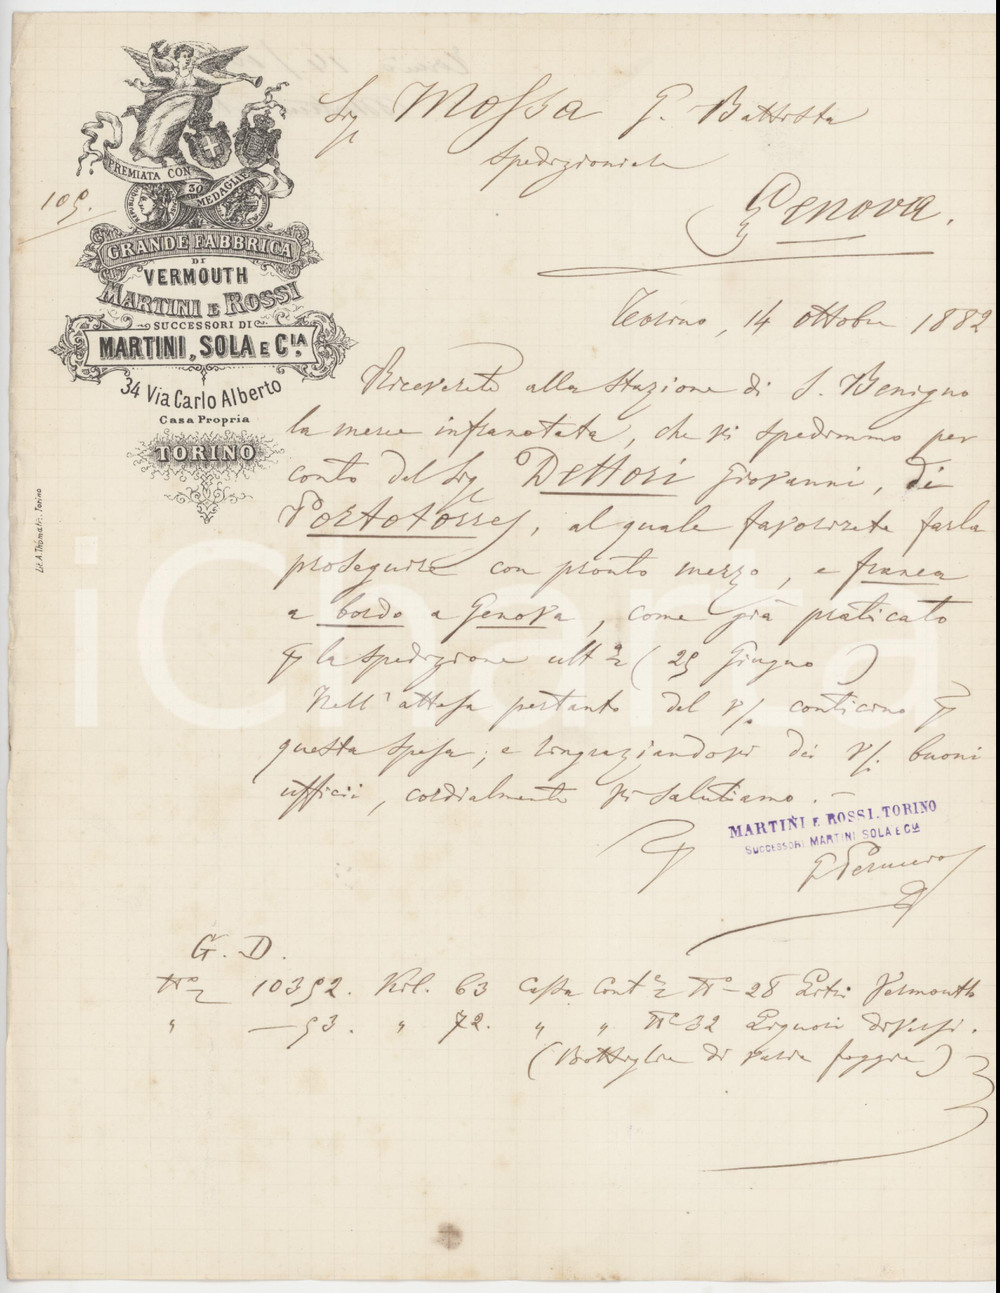 PREMIATA CON 30 MEDAGLIE
GRANDE FABBRICA
DI
VERMOUTH
MARTINI E ROSSI
SUCCESSORI DI
MARTINI, SOLA E CIA.
34 Via Carlo Alberto
Casa Propria
TORINO
Lit. A. Thomatis. Torino
109.
Sig Mossa G. Battista
Spedizioniere
Genova.
Torino, 14 ottobre 1882
Riceverete alla Stazione di S. Benigno
la merce infranotata, che vi spedimmo per
conto del Sig Dettori Giovanni, di
Portotorres, al quale favorirete farla
proseguire con pronto mezzo, e franca
a bordo a Genova, come già praticato
la spedizione ult (29 Giugno)
Nell'attesa pertanto del v/. conticino
questa spesa; e ringraziandovi dei v/. buoni
ufficii, cordialmente vi salutiamo.
MARTINI E ROSSI. TORINO
SUCCESSORI MARTINI SOLA E CIA
G. D.
No 10392. Kil. 63 Cassa Cont No 28 Litri Vermouth
" — 93. " 72. " " No 32 Liquori diversi.
(Bottiglie di varie foggie)
iCharta